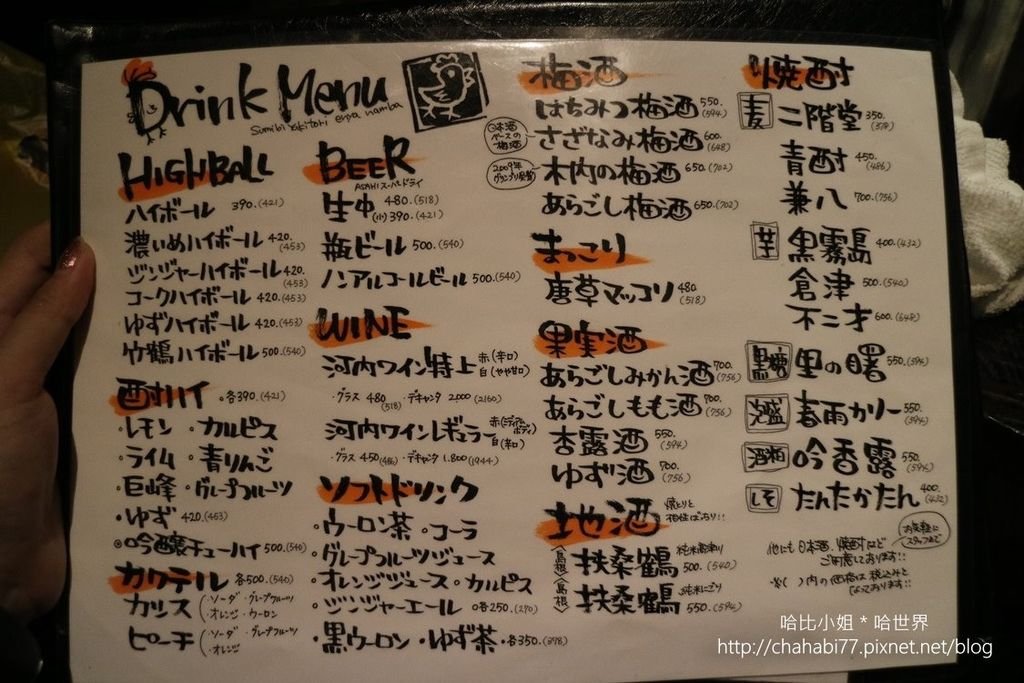 Drink Menu
Sumibi Yakitori enya namba
HIGHBALL
ハイボール 390.(421)
濃いめハイボール 420.(453)
ジンジャーハイボール 420.(453)
コークハイボール 420.(453)
ゆずハイボール 420.(453)
竹鶴ハイボール 500.(540)
酎ハイ 各390.(421)
・レモン ・カルピス
・ライム ・青りんご
・巨峰 ・グレープフルーツ
・ゆず 420.(453)
◎吟醸チューハイ 500.(540)
カクテル 各500.(540)
カシス (・ソーダ ・グレープフルーツ
・オレンジ ・ウーロン
ピーチ (・ソーダ ・グレープフルーツ
・オレンジ
BEER
ASAHI スーパードライ
生中 480.(518)
(小)390.(421)
瓶ビール 500.(540)
ノンアルコールビール 500.(540)
WINE
河内ワイン特上 赤(辛口)
白(やや甘口)
・グラス 480(518) ・デキャンタ 2000(2160)
河内ワインレギュラー 赤(ミディアムボディ)
白(辛口)
・グラス 450(486) ・デキャンタ 1.800(1944)
ソフトドリンク
・ウーロン茶 ・コーラ
・グレープフルーツジュース
・オレンジジュース ・カルピス
・ジンジャーエール ・各250.(270)
・黒ウーロン ・ゆず茶 ・各350.(378)
梅酒
はちみつ梅酒 550.(594)
日本酒ベースの梅酒
さざなみ梅酒 600.(648)
2009年グランプリ受賞
木内の梅酒 650.(702)
あらごし梅酒 650.(702)
まっこり
唐草マッコリ 480.(518)
果実酒
あらごしみかん酒 700.(756)
あらごしもも酒 700.(756)
杏露酒 550.(594)
ゆず酒 700.(756)
地酒 焼とりと相性ばっちり!!
(島根) 扶桑鶴 純米高津川 500.(540)
(島根) 扶桑鶴 純米にごり 550.(594)
焼酎
麦 二階堂 350.(378)
青酎 450.(486)
兼八 700.(756)
芋 黒霧島 400.(432)
倉津 500.(540)
不二才 600.(648)
黒糖 里の曙 550.(594)
泡盛 春雨カリー 550.(594)
酒粕 吟香露 550.(594)
しそ たんたかたん 400.(432)
お気軽にスタッフまで
他にも日本酒、焼酎など
ご用意しております!!
※( )内の価格は税込みと
なっております!!
哈比小姐 * 哈世界
http://chahabi77.pixnet.net/blog